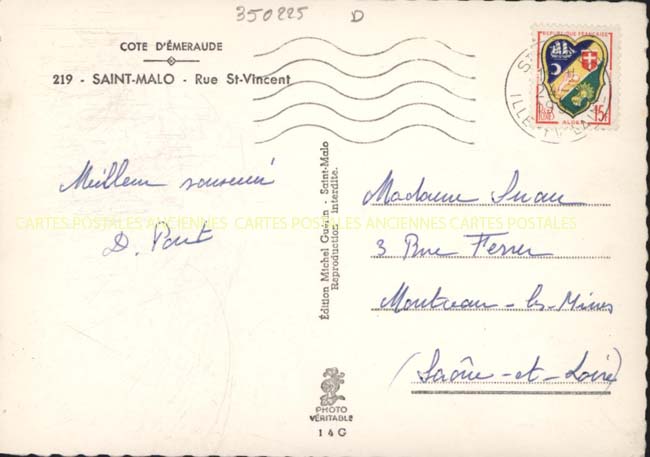 350225 D
COTE D'ÉMERAUDE
219 - SAINT-MALO - Rue St-Vincent
REPUBLIQUE FRANÇAISE
15F
ALGER
ILLE-ET-
Meilleur souvenir
D.
Édition Michel Guérin - Saint-Malo
Reproduction interdite.
Madame
3 Rue Ferrer
Montceau-les-Mines
(Saône-et-Loire)
CARTES POSTALES ANCIENNES CARTES POSTALES ANCIENNES CARTES POSTALES
PHOTO
VÉRITABLE
14G